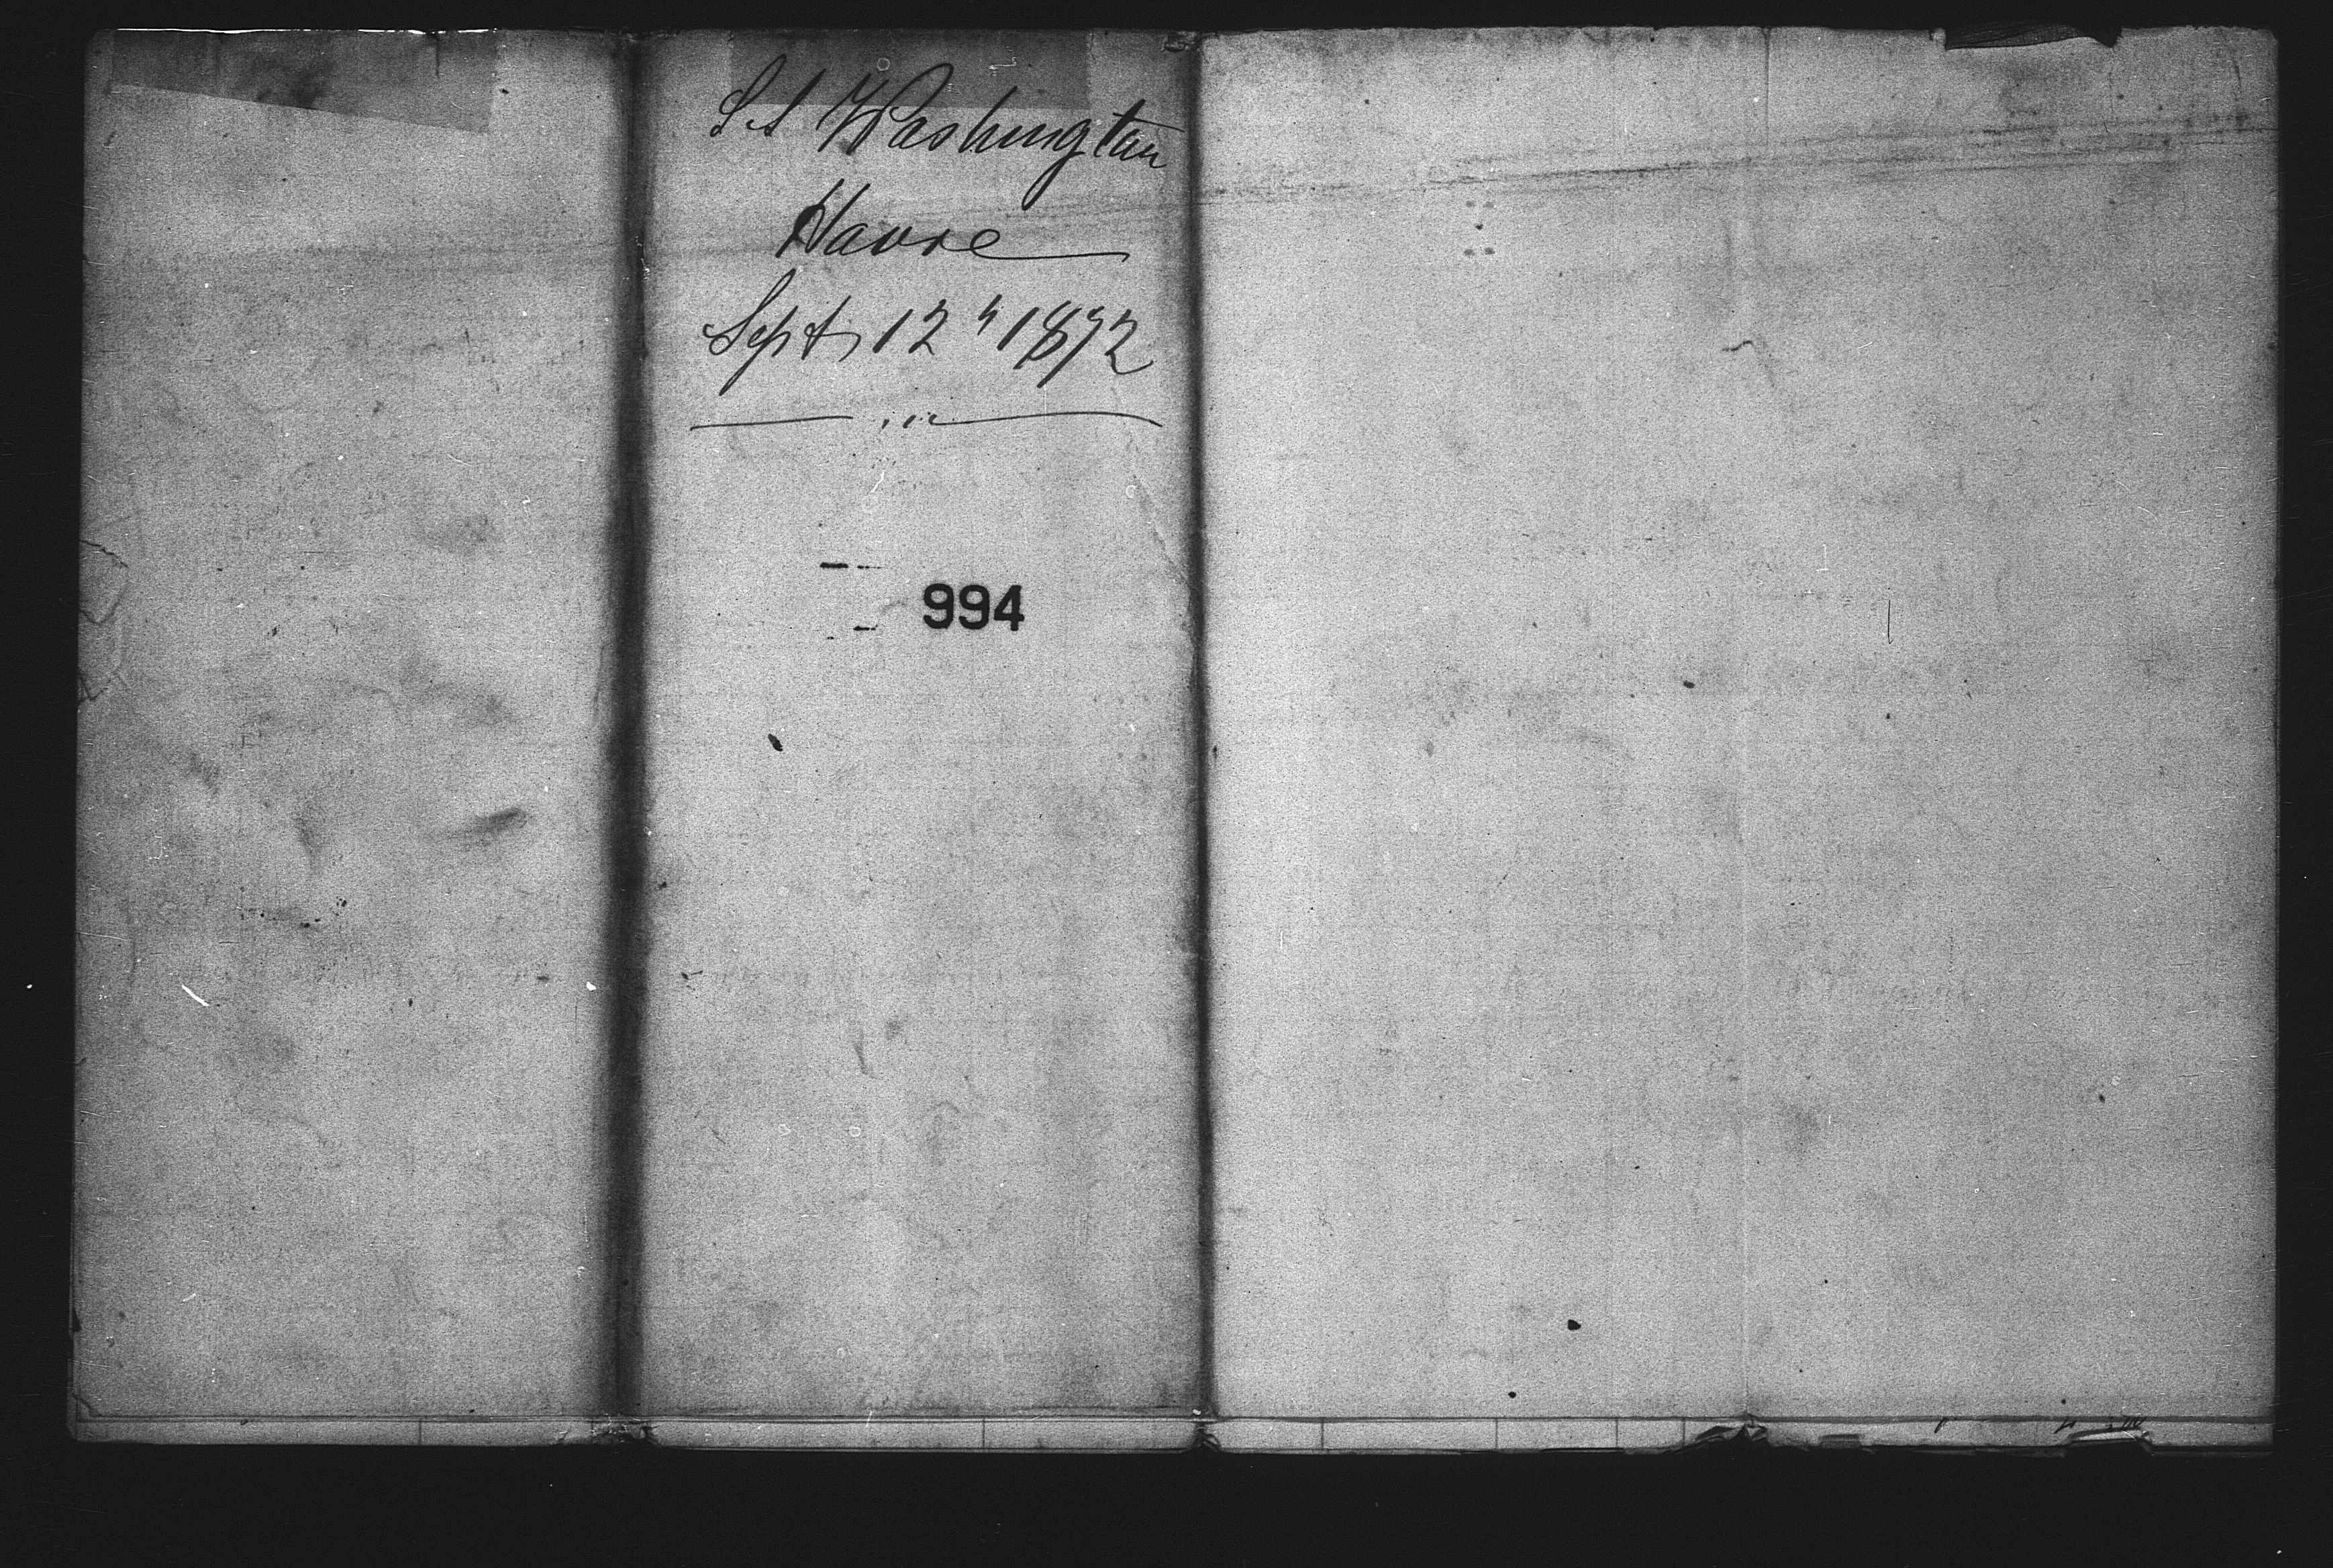 SS Washington
Havre
Sept 12" 1872
994